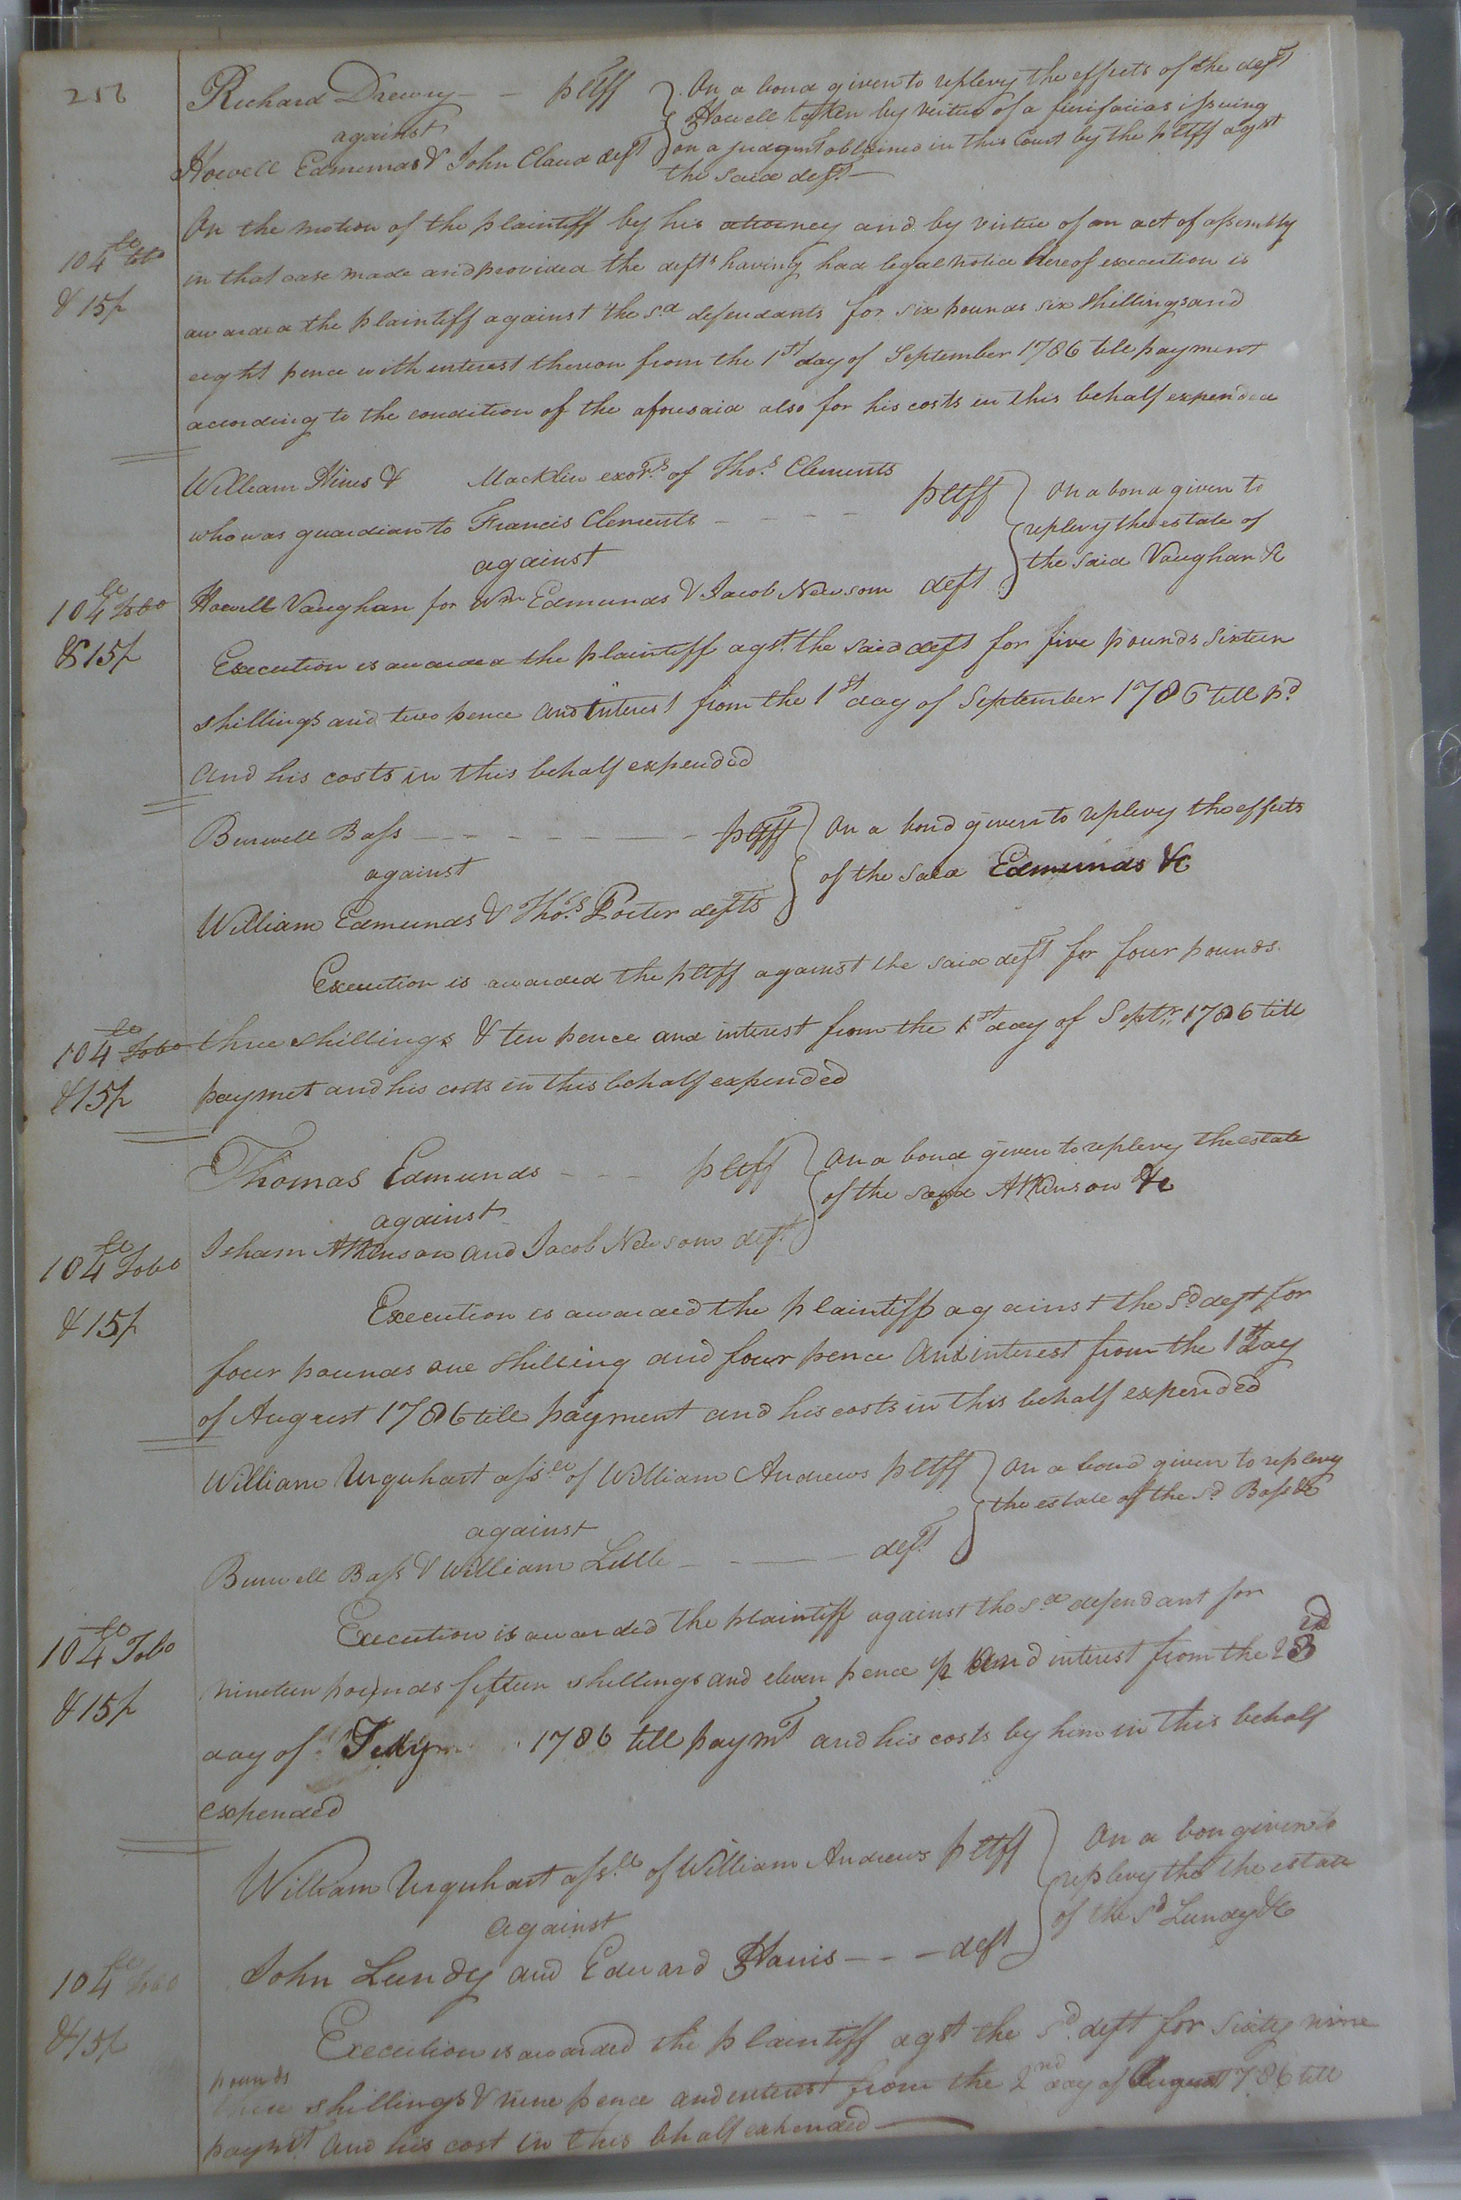 256
Richard Drewry - - pltff
against
Howell Edmunds & John Claud deft
On a bond given to replevy the effects of the deft
Howell taken by virtue of a firifaciias issuing
on a judgmt obtained in this Court by the pltff agst
the said deft
104 lb tobo
& 15/
On the motion of the plaintiff by his attorney and by virtue of an act of assembly
in that case made and provided the defts having had legal notice thereof execution is
awarded the plaintiff against the sd defendants for six pounds six shillings and
eight pence with interest thereon from the 1st day of September 1786 till payment
according to the condition of the aforesaid also for his costs in this behalf expended
William Hines & Macklin exors of Thos Clements
who was guardian to Francis Clements - - - - pltff
against
Howell Vaughan for Wm Edmunds & Jacob Newsom deft
On a bond given to
replevy the estate of
the said Vaughan &c
104 lb Tobo
& 15/
Execution is awarded the plaintiff agst the said deft for five pounds sixteen
shillings and two pence and interest from the 1st day of September 1786 till pd
and his costs in this behalf expended
Burwell Bass - - - - - - - pltff
against
William Edmunds & Thos Porter defts
On a bond given to replevy the effects
of the said Edmunds &c
Execution is awarded the pltff against the said deft for four pounds
104 lb Tobo
& 15/
three shillings & ten pence and interest from the 1st day of Septr 1786 till
paymet and his costs in this behalf expended
Thomas Edmunds - - - pltff
against
Isham Atkinson and Jacob Newsom deft
On a bond given to replevy the estate
of the said Atkinson &c
104 lb Tobo
& 15/
Execution is awarded the plaintiff against the sd deft for
four pounds one shilling and four pence and interest from the 1st day
of August 1786 till payment and his costs in this behalf expended
William Urquhart assee of William Andrews pltff
against
Burwell Bass & William Little - - - - deft
On a bond given to replevy
the estate of the sd Bass &c
104 lb Tobo
& 15/
Execution is awarded the plaintiff against the sd defendant for
nineteen pounds fifteen shillings and eleven pence and interest from the
day of July 1786 till paymt and his costs by him in this behalf
expended
William Urquhart assee of William Andrews pltff
against
John Lundy and Edward Harris - - - deft
On a bon given to
replevy the the estate
of the sd Lundy &c
104 lb Tobo
& 15/
Execution is awarded the plaintiff agst the sd deft for sixty nine
pounds
three shillings & nine pence and interest from the 2nd day of August 1786 till
paymt and his cost in this bhalf expended